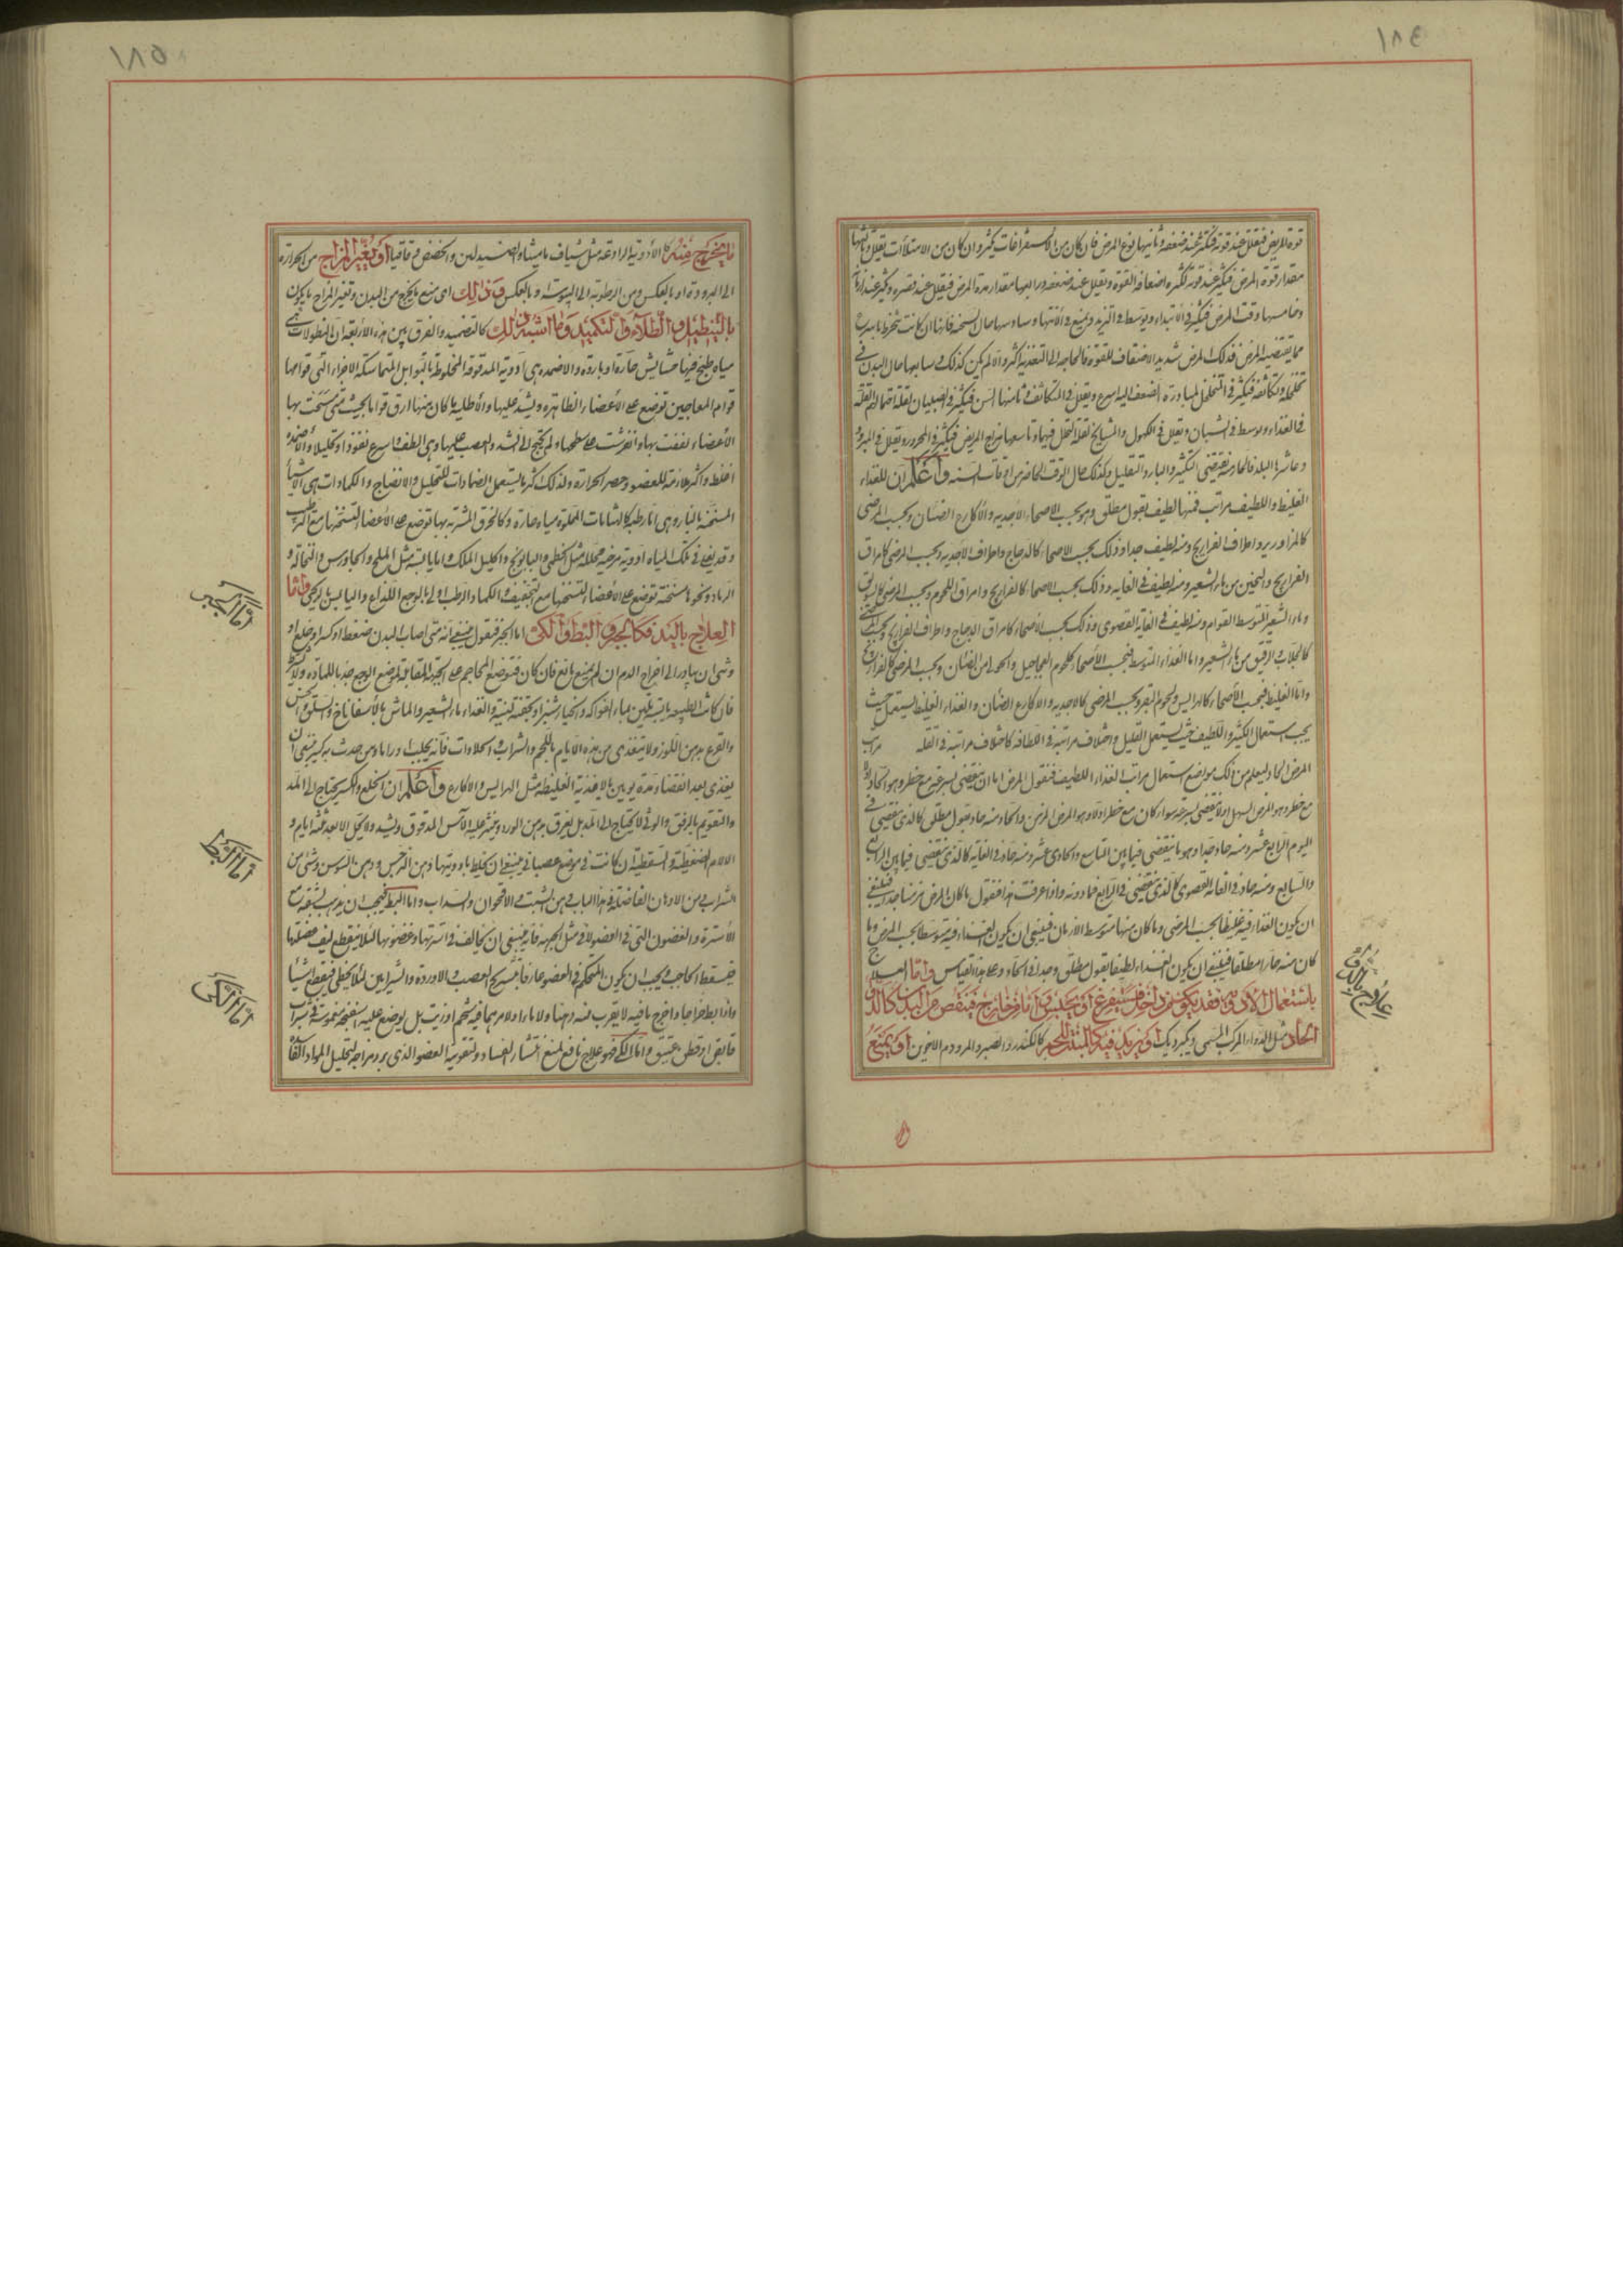 ١٨٤
قوة المريض فيقلل عند قوته ويكثر عند ضعفه وثانيها نوع المرض فان كان من الاستفراغات كثر وان كان من الامتلاآت يقلل وثالثها
مقدار قوة المرض فيكثر عند قوته لكثرة اضعافه القوة ويقلل عند ضعفه ورابعها مقدار مدة المرض فيقلل عند قصره ويكثر عند
وخامسها وقت المرض فيكثر في الابتداء ويوسط في التزيد ويمنع في الانتهاء وسادسها حال السحنة فانها ان كانت تنخرط
مما يقتضيه المرض فذلك المرض شديد الاضعاف للقوة فالحاجة الى التغذية اكثر والا لم يكن كذلك وسابعها حال البدن في
تخلخله وتكاثفه فيكثر في المتخلخل لمبادرة الضعف اليه اسرع ويقلل في المتكاثف وثامنها السن فيكثر في الصبيان لقلة
في الغذاء ويوسط في الشبان ويقلل في الكهول والمشايخ لقلة التحلل فيها وتاسعها مزاج المريض فيكثر في المحرور ويقلل في المبرود
وعاشرها البلد فالحار منه يقتضي التكثير والبارد التقليل وكذلك حال الوقت الحاضر من اوقات السنة واعلم ان للغذاء
الغليظ واللطيف مراتب فمنها لطيف بقول مطلق وهو بحسب الاصحاء الاجدية والاكارع الضان وبحسب المرضى
كالمزاوير واطراف الفراريج ومنه لطيف جدا وذلك بحسب الاصحاء كالدجاج واطراف الاجدية وبحسب المرضى كامراق
الفراريج والثخين من ماء الشعير ومنه لطيف في الغاية وذلك بحسب الاصحاء كالفراريج وامراق اللحوم وبحسب المرضى
وماء الشعير المتوسط القوام ومنه لطيف في الغاية القصوى وذلك بحسب الاصحاء كامراق الدجاج واطراف الفراريج وبحسب المرضى
كالجلاب والرقيق من ماء الشعير واما الغذاء المتوسط فبحسب الأصحاء كلحوم العجاجيل والحولي من الضان وبحسب المرضى كالفراريج
واما الغليظ فبحسب الأصحاء كالهرايس ولحوم البقر وبحسب المرضى كالاجدية والاكارع الضان والغذاء الغليظ يستعمل حيث
يجب استعمال الكثير واللطيف حيث يستعمل القليل واختلاف مراتبه في اللطافة كاختلاف مراتبه في القلة مراتب
المرض الحاد ليعلم من ذلك مواضع استعمال مراتب الغذاء اللطيف فنقول المرض اما ان ينقضي بسرعة مع خطر وهو الحاد او لا
مع خطر وهو المرض السهل او لا ينقضي بسرعة سواء كان مع خطر او لا وهو المرض المزمن والحاد منه حاد بقول مطلق كالذي ينقضي في
اليوم الرابع عشر ومنه حاد جدا وهو ما ينقضي فيما بين التاسع والحادي عشر ومنه حاد في الغاية كالذي ينقضي فيما بين الرابع
والسابع ومنه حاد في الغاية القصوى كالذي ينقضي في الرابع فما دونه واذا عرفت هذا فنقول ما كان المرض مزمنا جدا فينبغي
ان يكون الغذاء فيه غليظا بحسب المرضى وما كان منها متوسط الازمان فينبغي ان يكون الغذاء فيه متوسطا بحسب المرض وما
كان منه حارا مطلقا فينبغي ان يكون الغذاء لطيفا بقول مطلق وجدا في الحاد وعلى هذا القياس واما العلاج
باستعمال الادوية فقد يكون من داخل فيستفرغ او يحبس واما من خارج فينقص من البدن كالدواء
الحاد مثل الدواء المركب المسمى ديك برديك او يزيد فيه كالمنبت للحم كالكندر والصبر والمر ودم الاخوين او يمنع
علاج بالدواء
١٨٥
ما يخرج منه كالأدوية الرادعة مثل شياف ماميثا والصندلين والحضض واقاقيا او يغير المزاج من الحرارة
الى البرودة او بالعكس ومن الرطوبة الى اليبوسة او بالعكس وذلك اي منع ما يخرج من البدن وتغير المزاج ما يكون
بالتنطيل والطلاء والتكميد وما اشبه ذلك كالتضميد والفرق بين هذه الأربعة ان النطولات هي
مياه طبخ فيها حشايش حارة او باردة والاضمدة هي ادوية المدقوقة المخلوطة بالتوابل المتماسكة الاجزاء التي قوامها
قوام المعاجين توضع على الأعضاء الظاهرة ويشد عليها والأطلية ما كان منها ارق قواما بحيث متى سحت بها
الأعضاء لصقت بها وانفرشت على سطحها ولم تحتج الى الشد والعصب عليها وهي الطف واسرع نفوذا وتحليلا والاضمدة
اغلظ واكثر ملازمة للعضو وحصر الحرارة ولذلك اكثر ما يستعمل الضمادات للتحليل والانضاج والكمادات هي الأشياء
المسخنة بالنار وهي اما رطبة كالمثانات المملوة مياه حارة وكالخرق المشربة بها توضع على الأعضاء لتسخنها مع الترطيب
وقد يغلى في تلك المياه ادوية مرخية محللة مثل الخطمي والبابونج واكليل الملك واما يابسة مثل الملح والجاورس والنخالة و
الرماد ونحوها مسخنة توضع على الأعضاء لتسخنها مع التجفيف والكماد الرطب اولى بالوجع اللذاع واليابس بالريحي واما
العلاج باليد فكالجبر والبط والكي اما الجبر فنقول ينبغي انه متى اصاب البدن ضغط او كسر او خلع او
وثي ان يبادر الى اخراج الدم ان لم يمنع مانع فان كان فتوضع المحاجم على الجهة المقابلة لموضع الوجع جذبا للمادة ولا
فان كانت الطبيعة يابسة تلين بماء الفواكه والخيارشنبر او بحقنة لينة والغذاء ماء الشعير والماش بالأسفاناخ والسلق والخس
والقرع بدهن اللوز ولا يتغذى من هذه الايام باللحم والشراب والحلاوات فانه يجلب اوراما ومن حدث به كسر ينبغي ان
يغذى بعد انقضاء مدة يومين بالاغذية الغليظة مثل الهرايس والاكارع واعلم ان الخلع والكسر يحتاج الى المد
والتقويم بالرفق والوثي لا يحتاج الى المد بل يعرق بدهن الورد وينثر عليه الآس المدقوق ويشد ولا يحل الا بعد ثلثة ايام و
الالام الضغطية والسقطية ان كانت في موضع عصباني فينبغي ان يخلط بادويتها دهن النرجس ودهن السوسن وشيء من
الشراب ومن الادهان الفاضلة في هذا الباب دهن الشبت والاقحوان والسداب واما البط فيجب ان يذهب بشقه مع
الأسرة والغضون التي في العضو الا في مثل الجبهة فانه ينبغي ان يخالف في اسرتها وغضونها لئلا ينقطع ليف عضلتها
فيسقط الحاجب ويجب ان يكون المتحكم في العضو عارفا بتشريح العصب والاوردة والشرايين لئلا يخطي فيقطع شيئا
واذا بط خراجا واخرج ما فيه لا يقرب منه دهنا ولا ماء ولا مرهما فيه شحم او زيت بل يوضع عليه اسفنجة مغموسة في شراب
قابض او قطن عتيق واما الكي فهو علاج نافع لمنع انتشار الفساد ولتقوية العضو الذي برد مزاجه لتحليل المواد الفاسدة
اما الجبر
اما البط
اما الكي